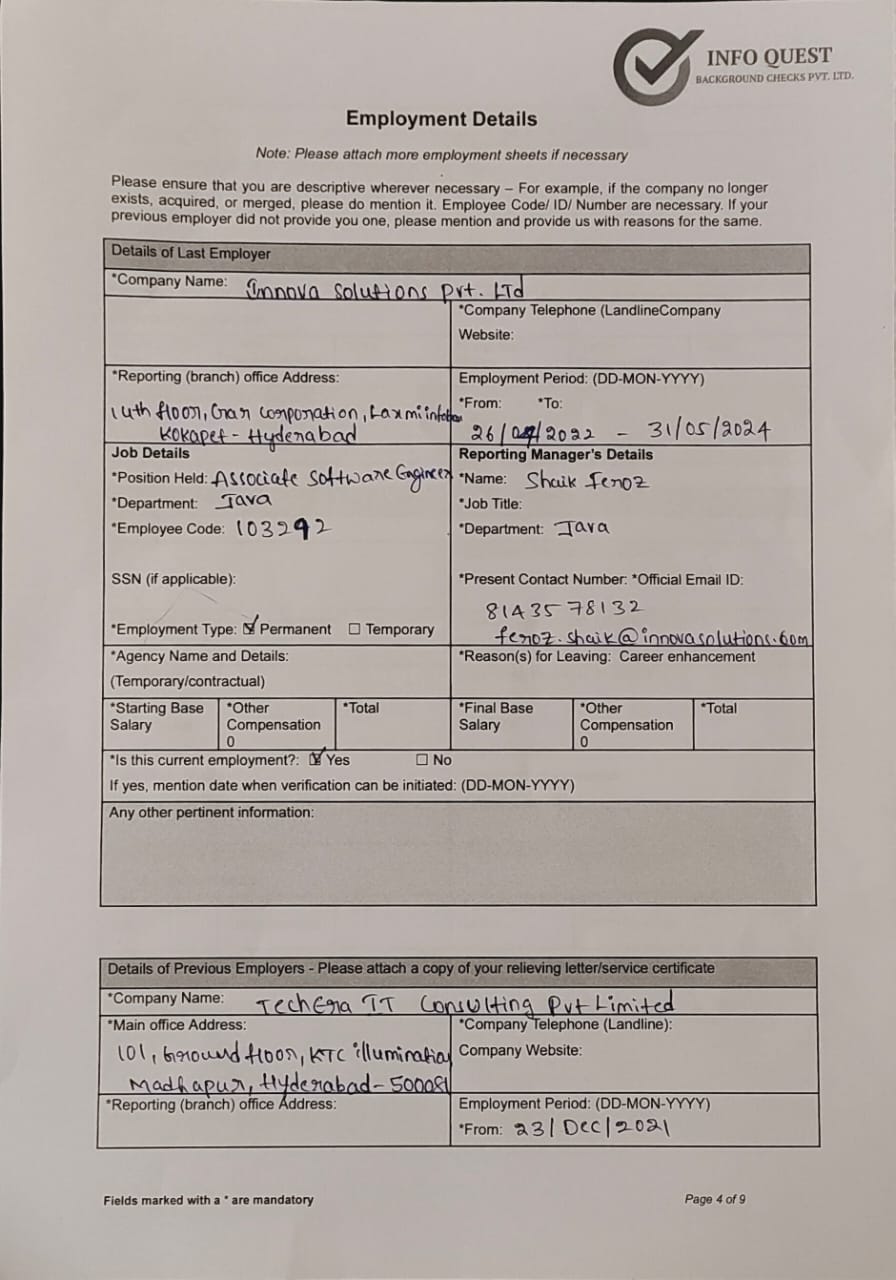 INFO QUEST
BACKGROUND CHECKS PVT. LTD.
Employment Details
Note: Please attach more employment sheets if necessary
Please ensure that you are descriptive wherever necessary – For example, if the company no longer
exists, acquired, or merged, please do mention it. Employee Code/ ID/ Number are necessary. If your
previous employer did not provide you one, please mention and provide us with reasons for the same.
Details of Last Employer
*Company Name: Innova Solutions Pvt. LTd
*Company Telephone (LandlineCompany
Website:
*Reporting (branch) office Address:
14th floor, Gar Corporation, Laxmi infoban
Kokapet - Hyderabad
Employment Period: (DD-MON-YYYY)
*From: *To:
26/ /2022 - 31/05/2024
Job Details
*Position Held: Associate Software Engineer
*Department: Java
*Employee Code: 103292
SSN (if applicable):
*Employment Type: ☑ Permanent ☐ Temporary
Reporting Manager's Details
*Name: Shaik Feroz
*Job Title:
*Department: Java
*Present Contact Number: *Official Email ID:
8143578132
feroz.shaik@innovasolutions.com
*Agency Name and Details:
(Temporary/contractual)
*Reason(s) for Leaving: Career enhancement
*Starting Base Salary
*Other Compensation 0
*Total
*Final Base Salary
*Other Compensation 0
*Total
*Is this current employment?: ☑ Yes ☐ No
If yes, mention date when verification can be initiated: (DD-MON-YYYY)
Any other pertinent information:
Details of Previous Employers - Please attach a copy of your relieving letter/service certificate
*Company Name: TechEra IT Consulting Pvt Limited
*Main office Address:
101, Ground floor, KTC illumination
Madhapur, Hyderabad - 500081
*Company Telephone (Landline):
Company Website:
*Reporting (branch) office Address:
Employment Period: (DD-MON-YYYY)
*From: 23/Dec/2021
Fields marked with a * are mandatory
Page 4 of 9